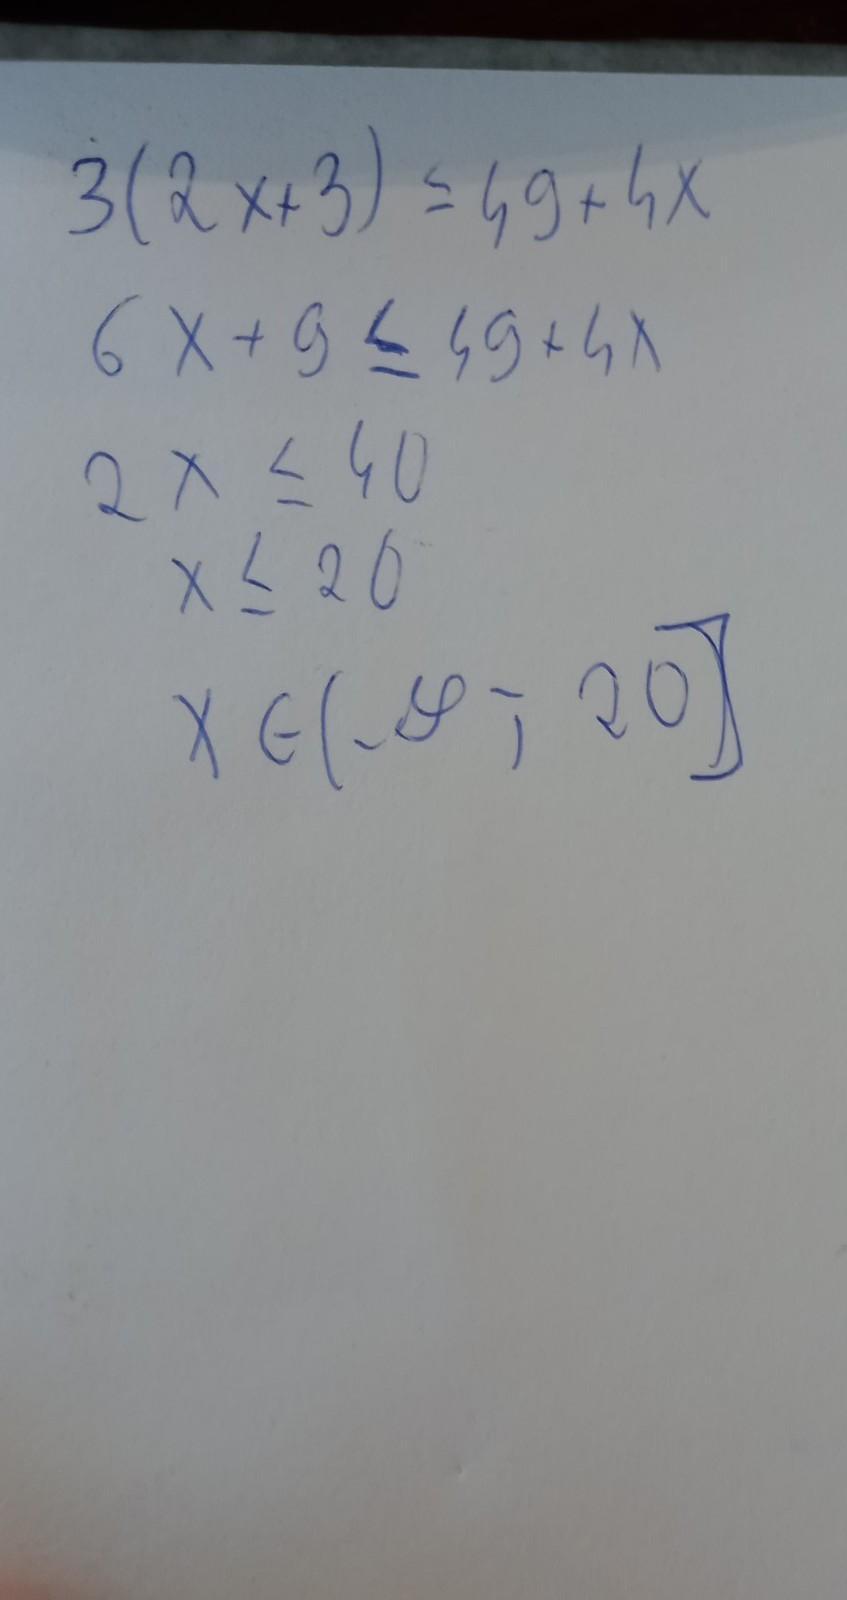 3(2x+3) ≤ 49+4x
6x+9 ≤ 49+4x
2x ≤ 40
x ≤ 20
x ∈ (-∞; 20]